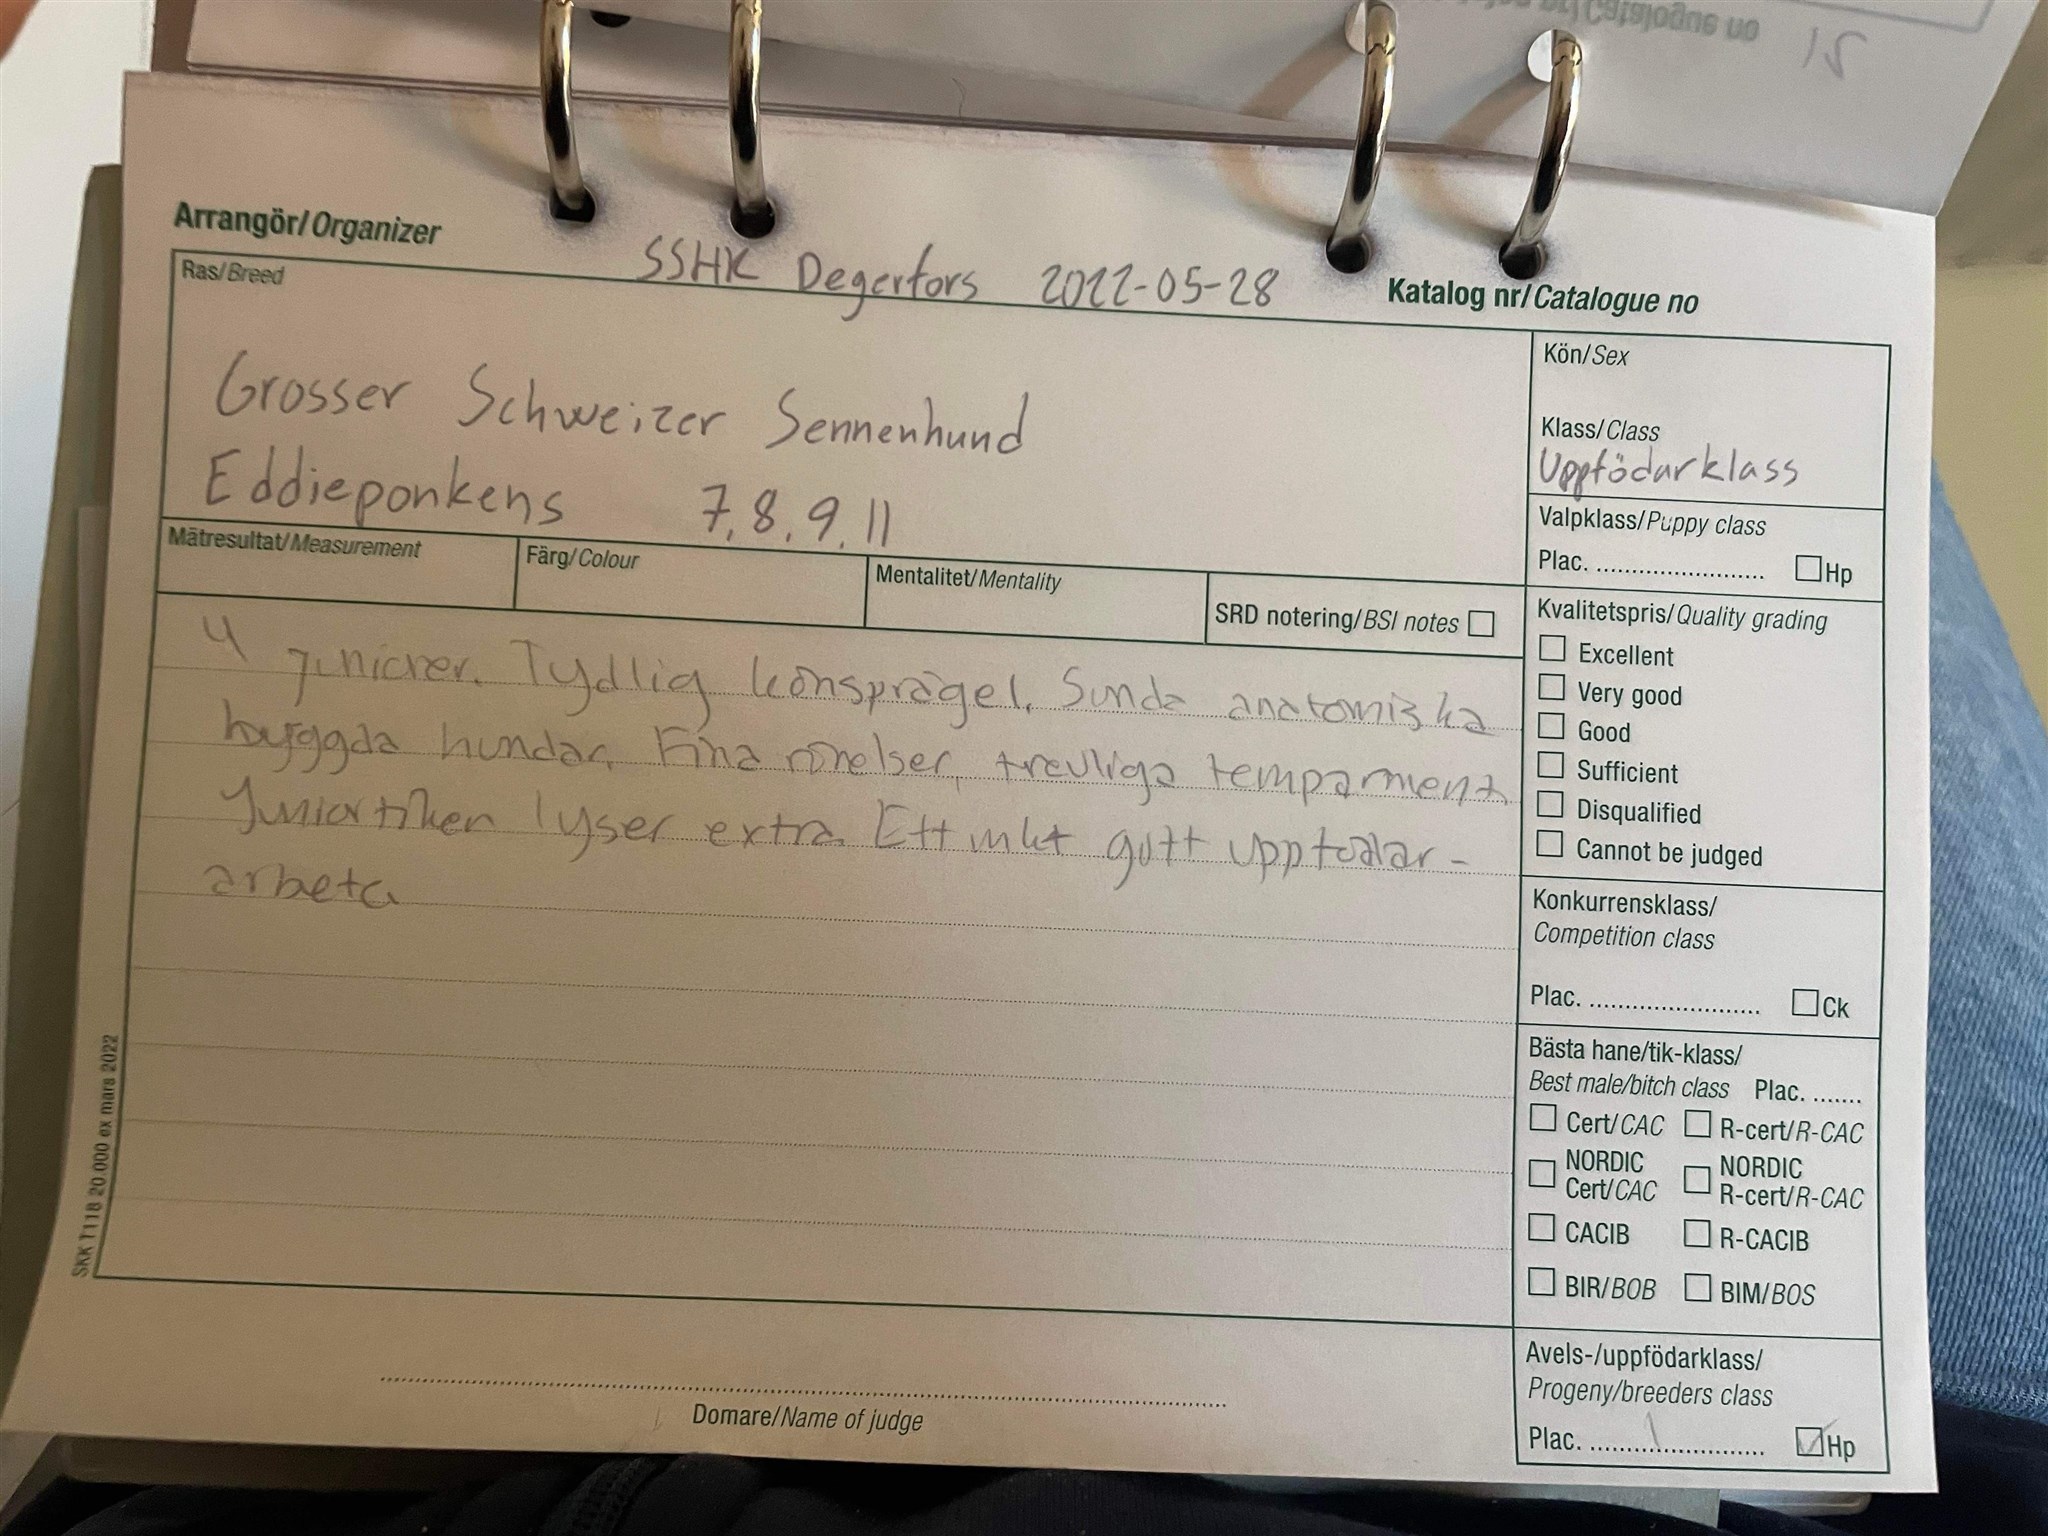 Catalogue no 15
Arrangör/Organizer
SSHK Degerfors 2022-05-28
Katalog nr/Catalogue no
Ras/Breed
Grosser Schweizer Sennenhund
Eddieponkens 7,8,9,11
Kön/Sex
Klass/Class
Uppfödarklass
Valpklass/Puppy class
Plac. ........................ Hp
Mätresultat/Measurement
Färg/Colour
Mentalitet/Mentality
SRD notering/BSI notes
4 juniorer. Tydlig könsprägel. Sunda anatomiska
byggda hundar. Fina rörelser, trevliga temparment
Juniortiken lyser extra. Ett mkt gott uppfödar-
arbete
Kvalitetspris/Quality grading
Excellent
Very good
Good
Sufficient
Disqualified
Cannot be judged
Konkurrensklass/
Competition class
Plac. ........................ Ck
Bästa hane/tik-klass/
Best male/bitch class Plac. .......
Cert/CAC R-cert/R-CAC
NORDIC Cert/CAC NORDIC R-cert/R-CAC
CACIB R-CACIB
BIR/BOB BIM/BOS
Avels-/uppfödarklass/
Progeny/breeders class
Plac. 1 Hp
Domare/Name of judge
SKK T118 20.000 ex mars 2022